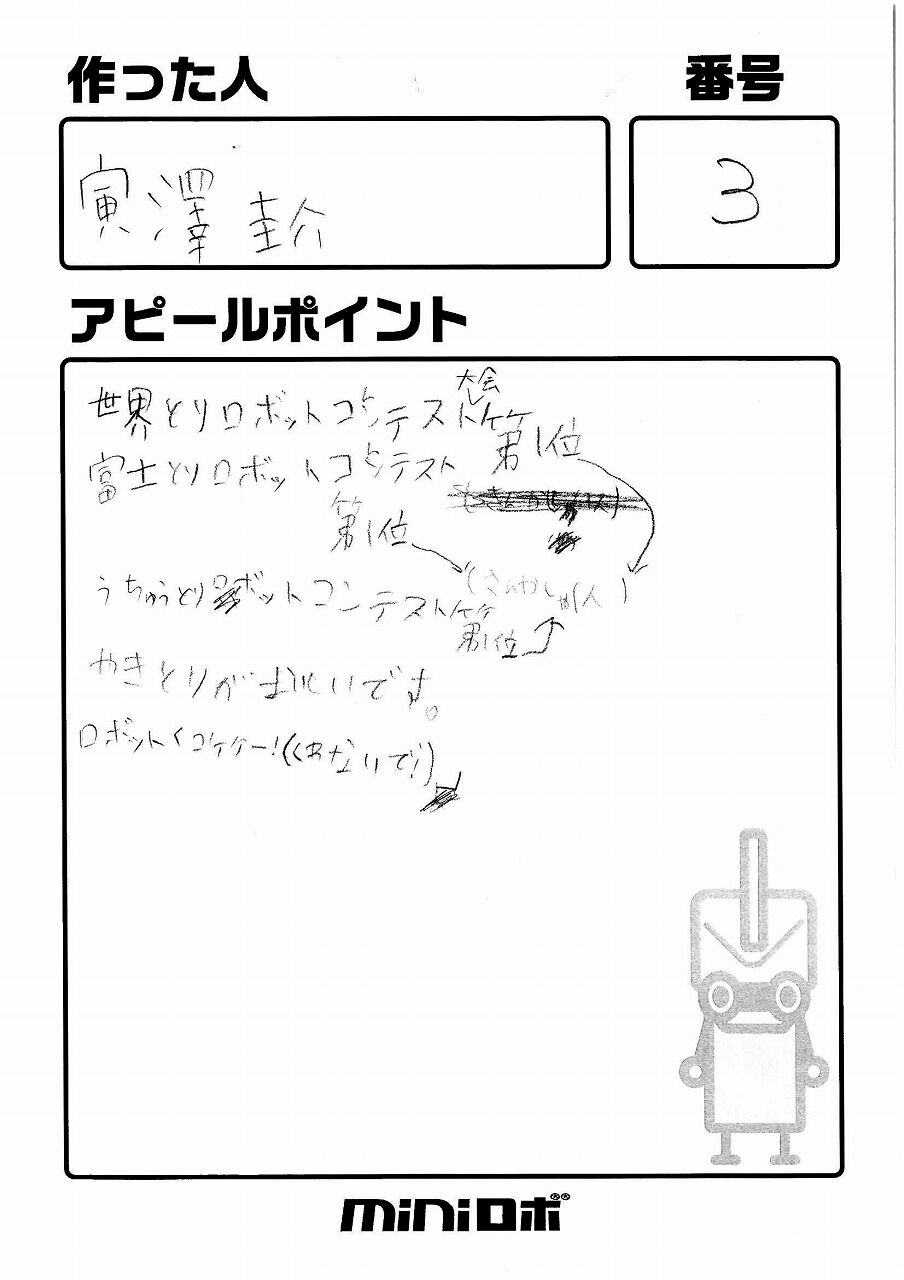 作った人
番号
寅澤 圭介
3
アピールポイント
世界とりロボットコンテスト大会
第1位
富士とりロボットコンテスト
第1位
うちゅうとりロボットコンテスト
(さんかしゃ1人)
第1位
やきとりがおいしいです。
ロボット<コケケー!(くわないで!)
miniロボ